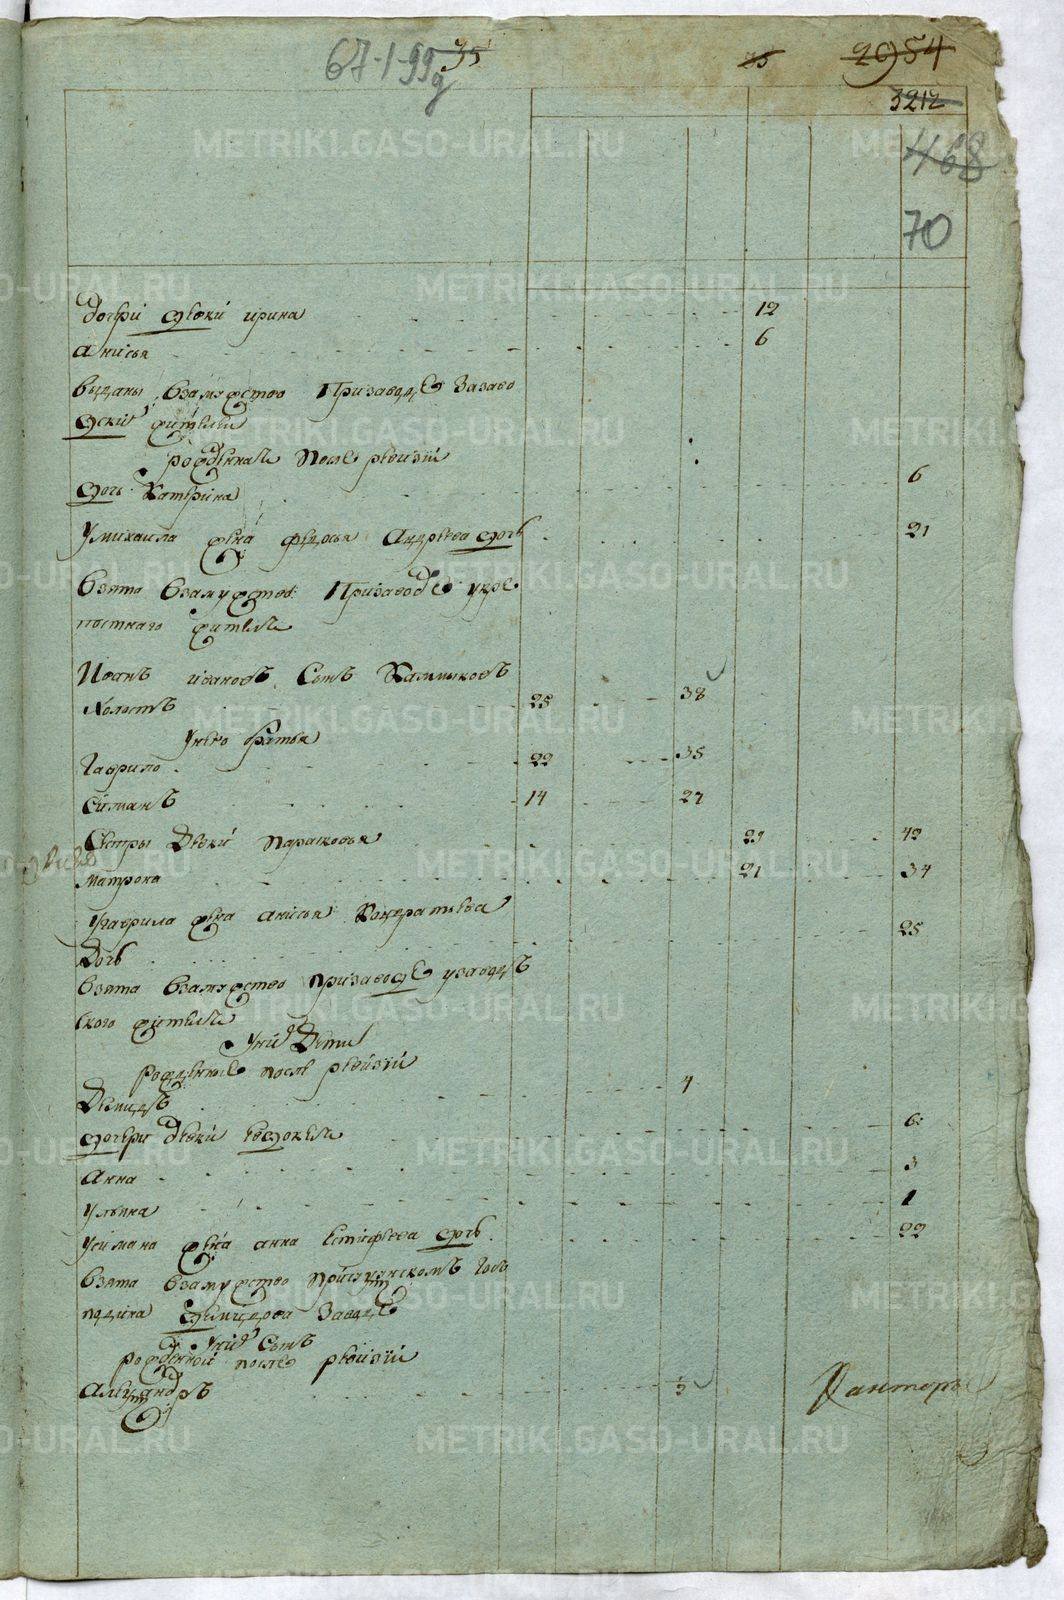 67-1-99д 35 35 2954
3212
468
70
дочри девки ирина 12
анисья 6
выданы взамуство Призаводе Зазаво
дски жители
рожденная после ревизии
дочь Катерина 6
Умихаила жена федосья Андреева дочь 21
взята взамужство Призаводе укре
постнаго жителя
Иванъ ивановъ Сынъ Калмыковъ
холостъ 25 38
Унево братья
Гаврило 22 35
Симанъ 14 27
Сестры Девки парасковья 29 42
матрона 21 34
Угаврила жена анисья Кондратьева 25
Дочь
взята взамужство призаводе узаводъ
ского жителя
Уних Дети
рожденные после ревизии
Демидъ 4
дочери девки евдокея 6
анна 3
ульяна 1
Усимана жена анна естифеева дочь 22
взята взамужство Госпо
подина демидова Заводе
Уних Сынъ
рожденной после ревизии
Александръ 2
Кантора